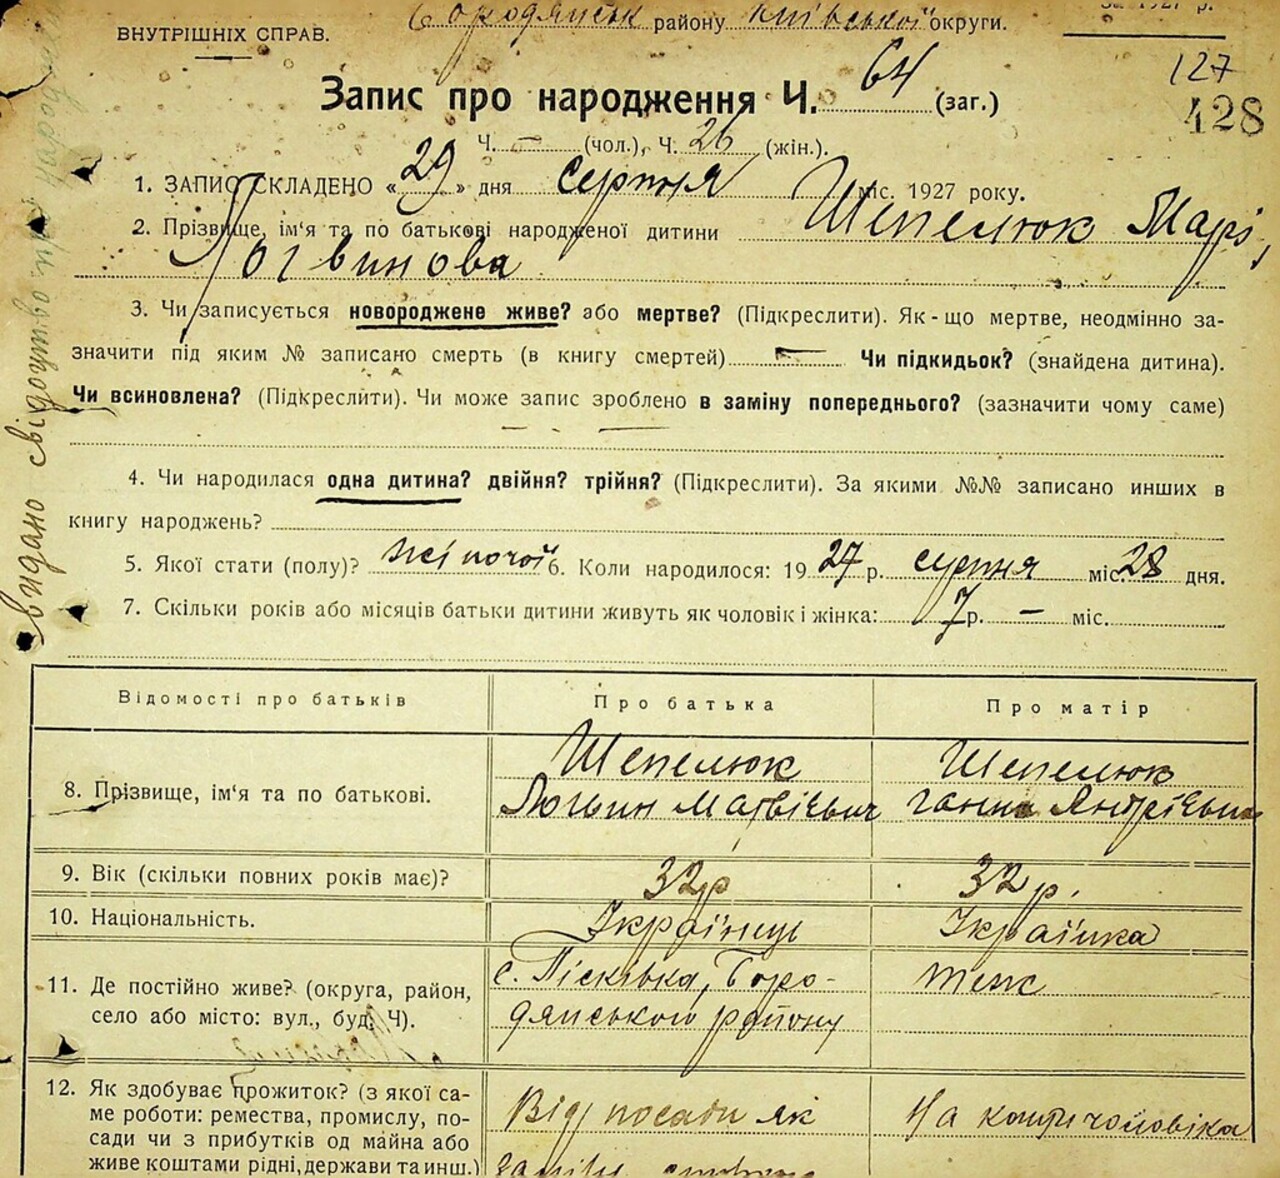 Бородянськ району Київської округи.
за 1927 р.
ВНУТРІШНІХ СПРАВ.
127
128
Запис про народження Ч. 64 (заг.)
Ч. — (чол.), Ч. 26 (жін.).
1. ЗАПИС СКЛАДЕНО «29» дня серпня міс. 1927 року.
2. Прізвище, ім'я та по батькові народженої дитини Шепелюк Марі
Логвинова
3. Чи записується новороджене живе? або мертве? (Підкреслити). Як-що мертве, неодмінно за-
значити під яким № записано смерть (в книгу смертей) — Чи підкидьок? (знайдена дитина).
Чи всиновлена? (Підкреслити). Чи може запис зроблено в заміну попереднього? (зазначити чому саме)
4. Чи народилася одна дитина? двійня? трійня? (Підкреслити). За якими №№ записано инших в
книгу народжень?
5. Якої стати (полу)? жіночої 6. Коли народилося: 1927 р. серпня міс. 28 дня.
7. Скільки років або місяців батьки дитини живуть як чоловік і жінка: 7 р. — міс.
Відомості про батьків
Про батька
Про матір
8. Прізвище, ім'я та по батькові.
Шепелюк
Логвин Матвієвич
Шепелюк
Ганна Андрієвна
9. Вік (скільки повних років має)?
32 р
32 р.
10. Національність.
Українець
Українка
11. Де постійно живе? (округа, район,
село або місто: вул., буд. Ч).
с. Пісківка, Боро-
дянського району
теж
12. Як здобуває прожиток? (з якої са-
ме роботи: ремества, промислу, по-
сади чи з прибутків од майна або
живе коштами рідні, держави та инш.)
Від посади як
На кошти чоловіка
видано свідоцтво